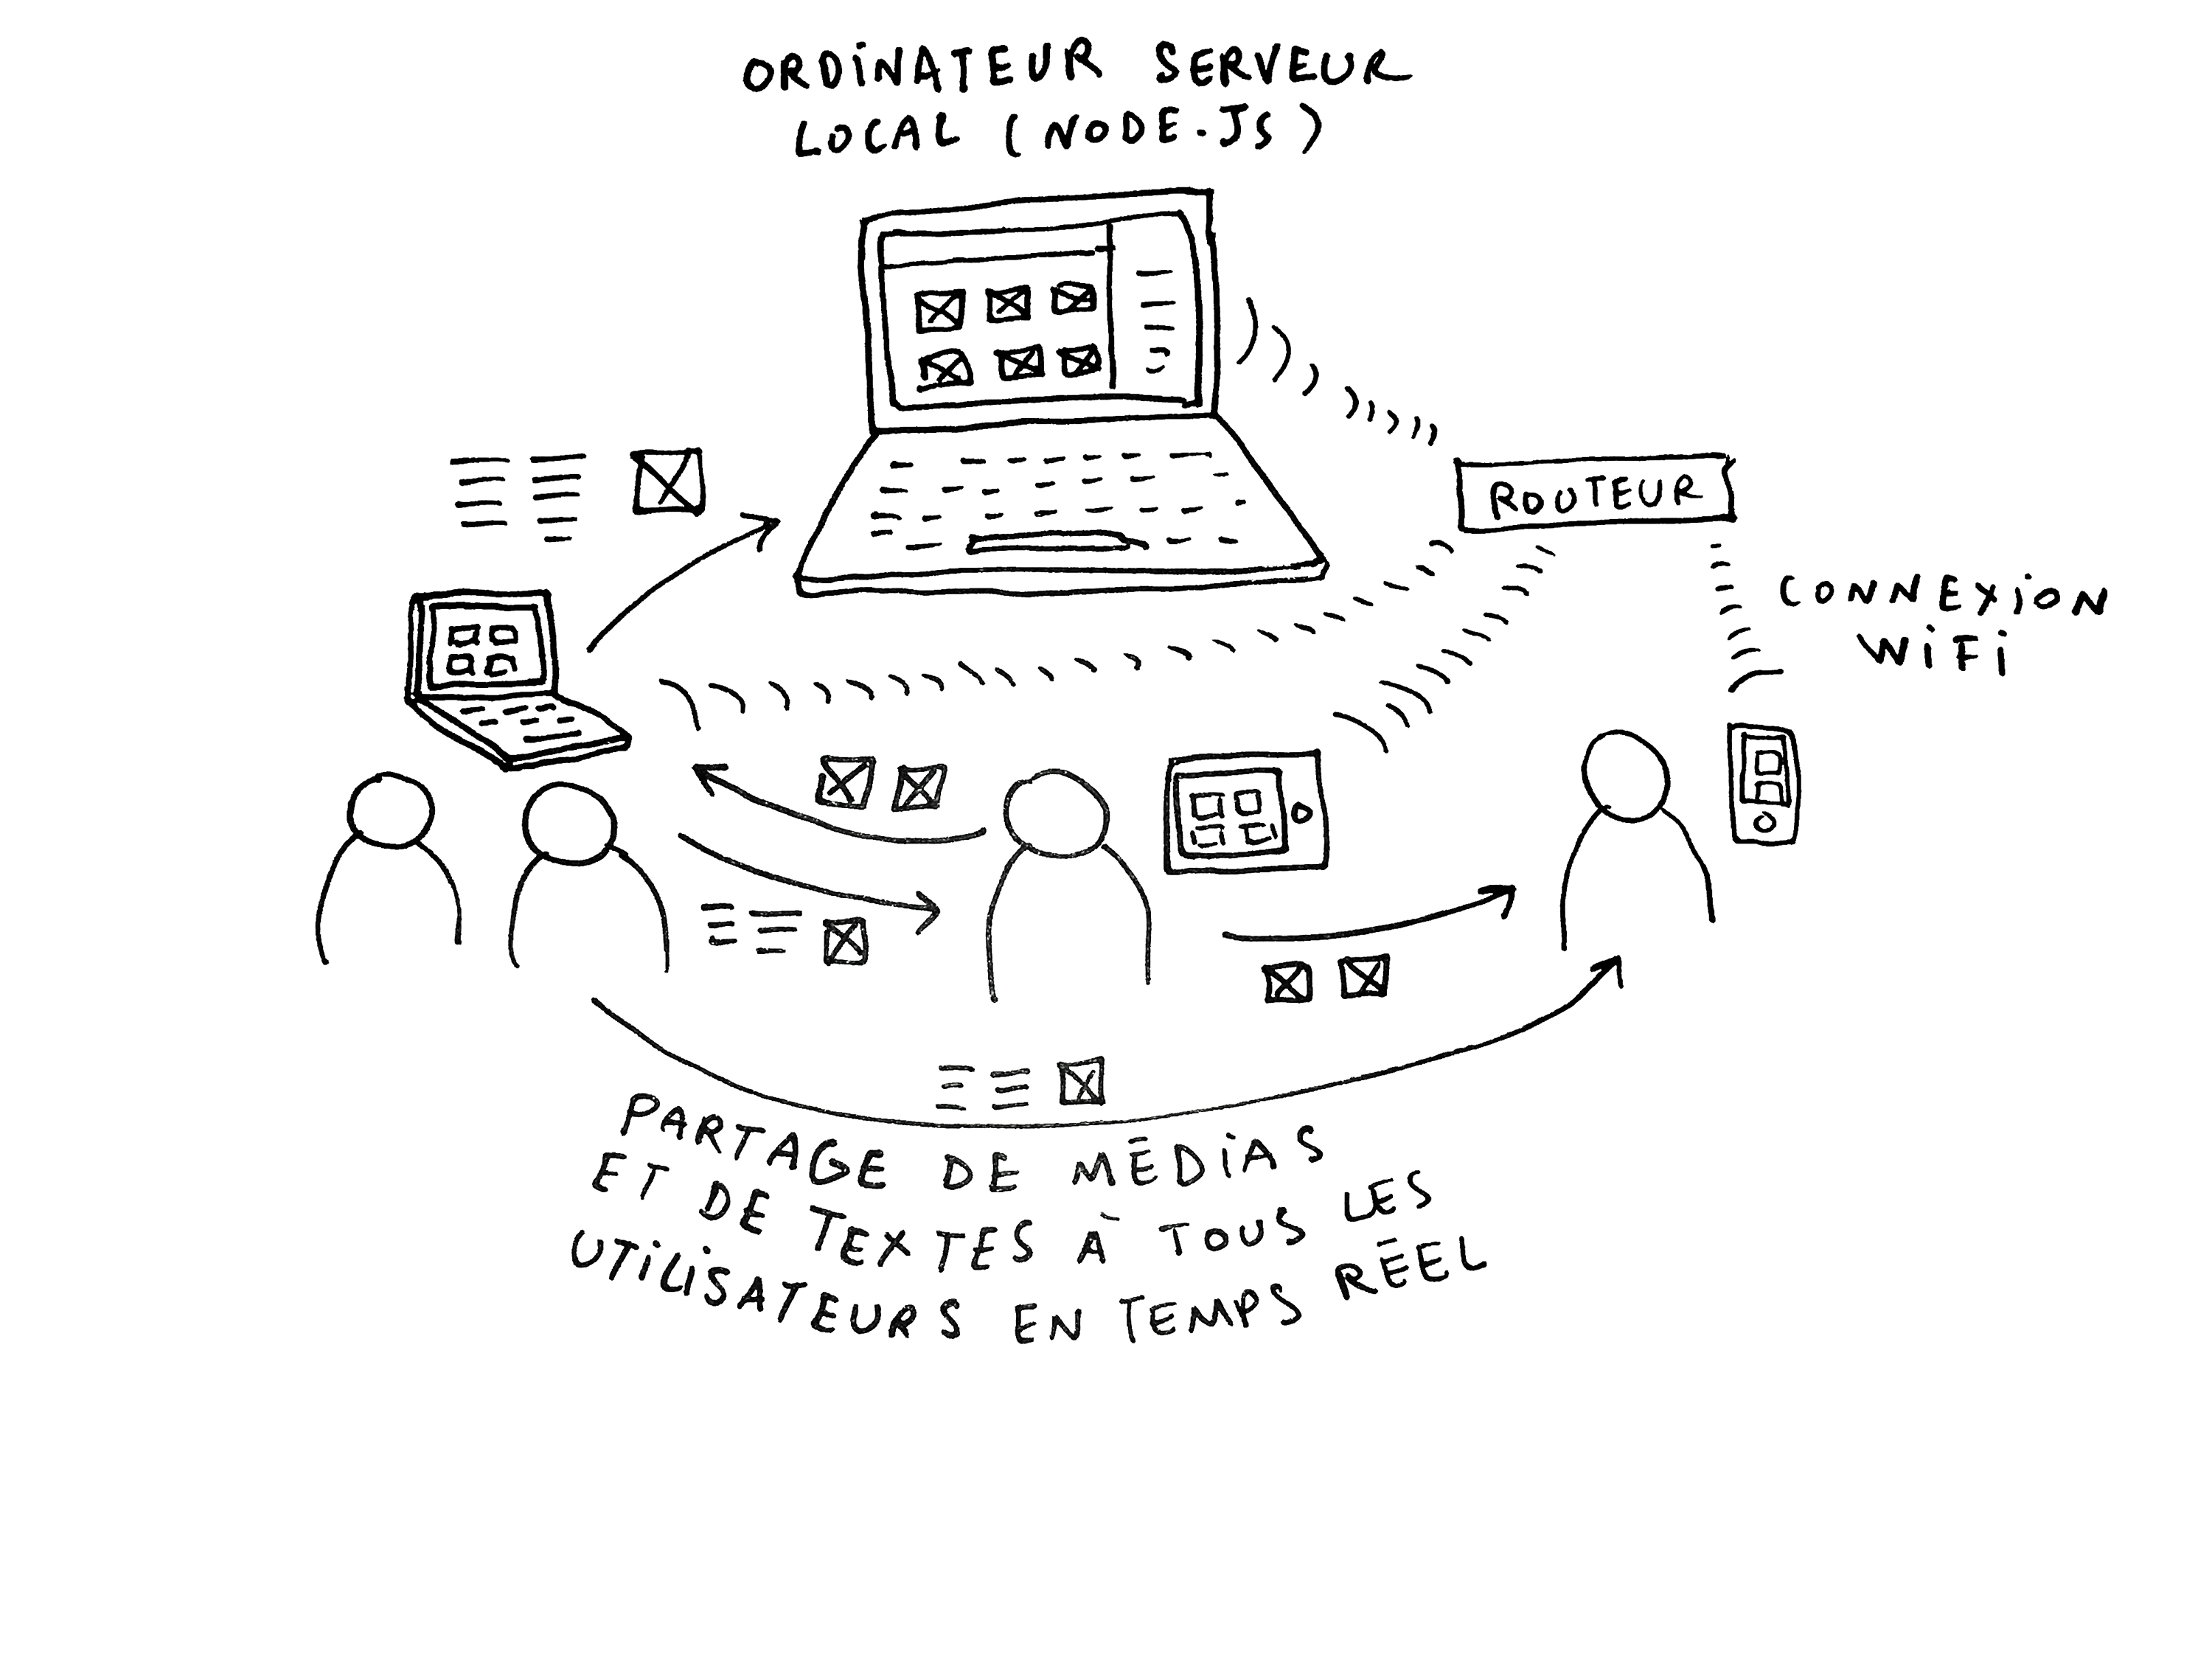 ORDINATEUR SERVEUR
LOCAL (NODE.JS)
ROUTEUR
CONNEXION
WIFI
PARTAGE DE MÉDIAS
ET DE TEXTES À TOUS LES
UTILISATEURS EN TEMPS RÉEL